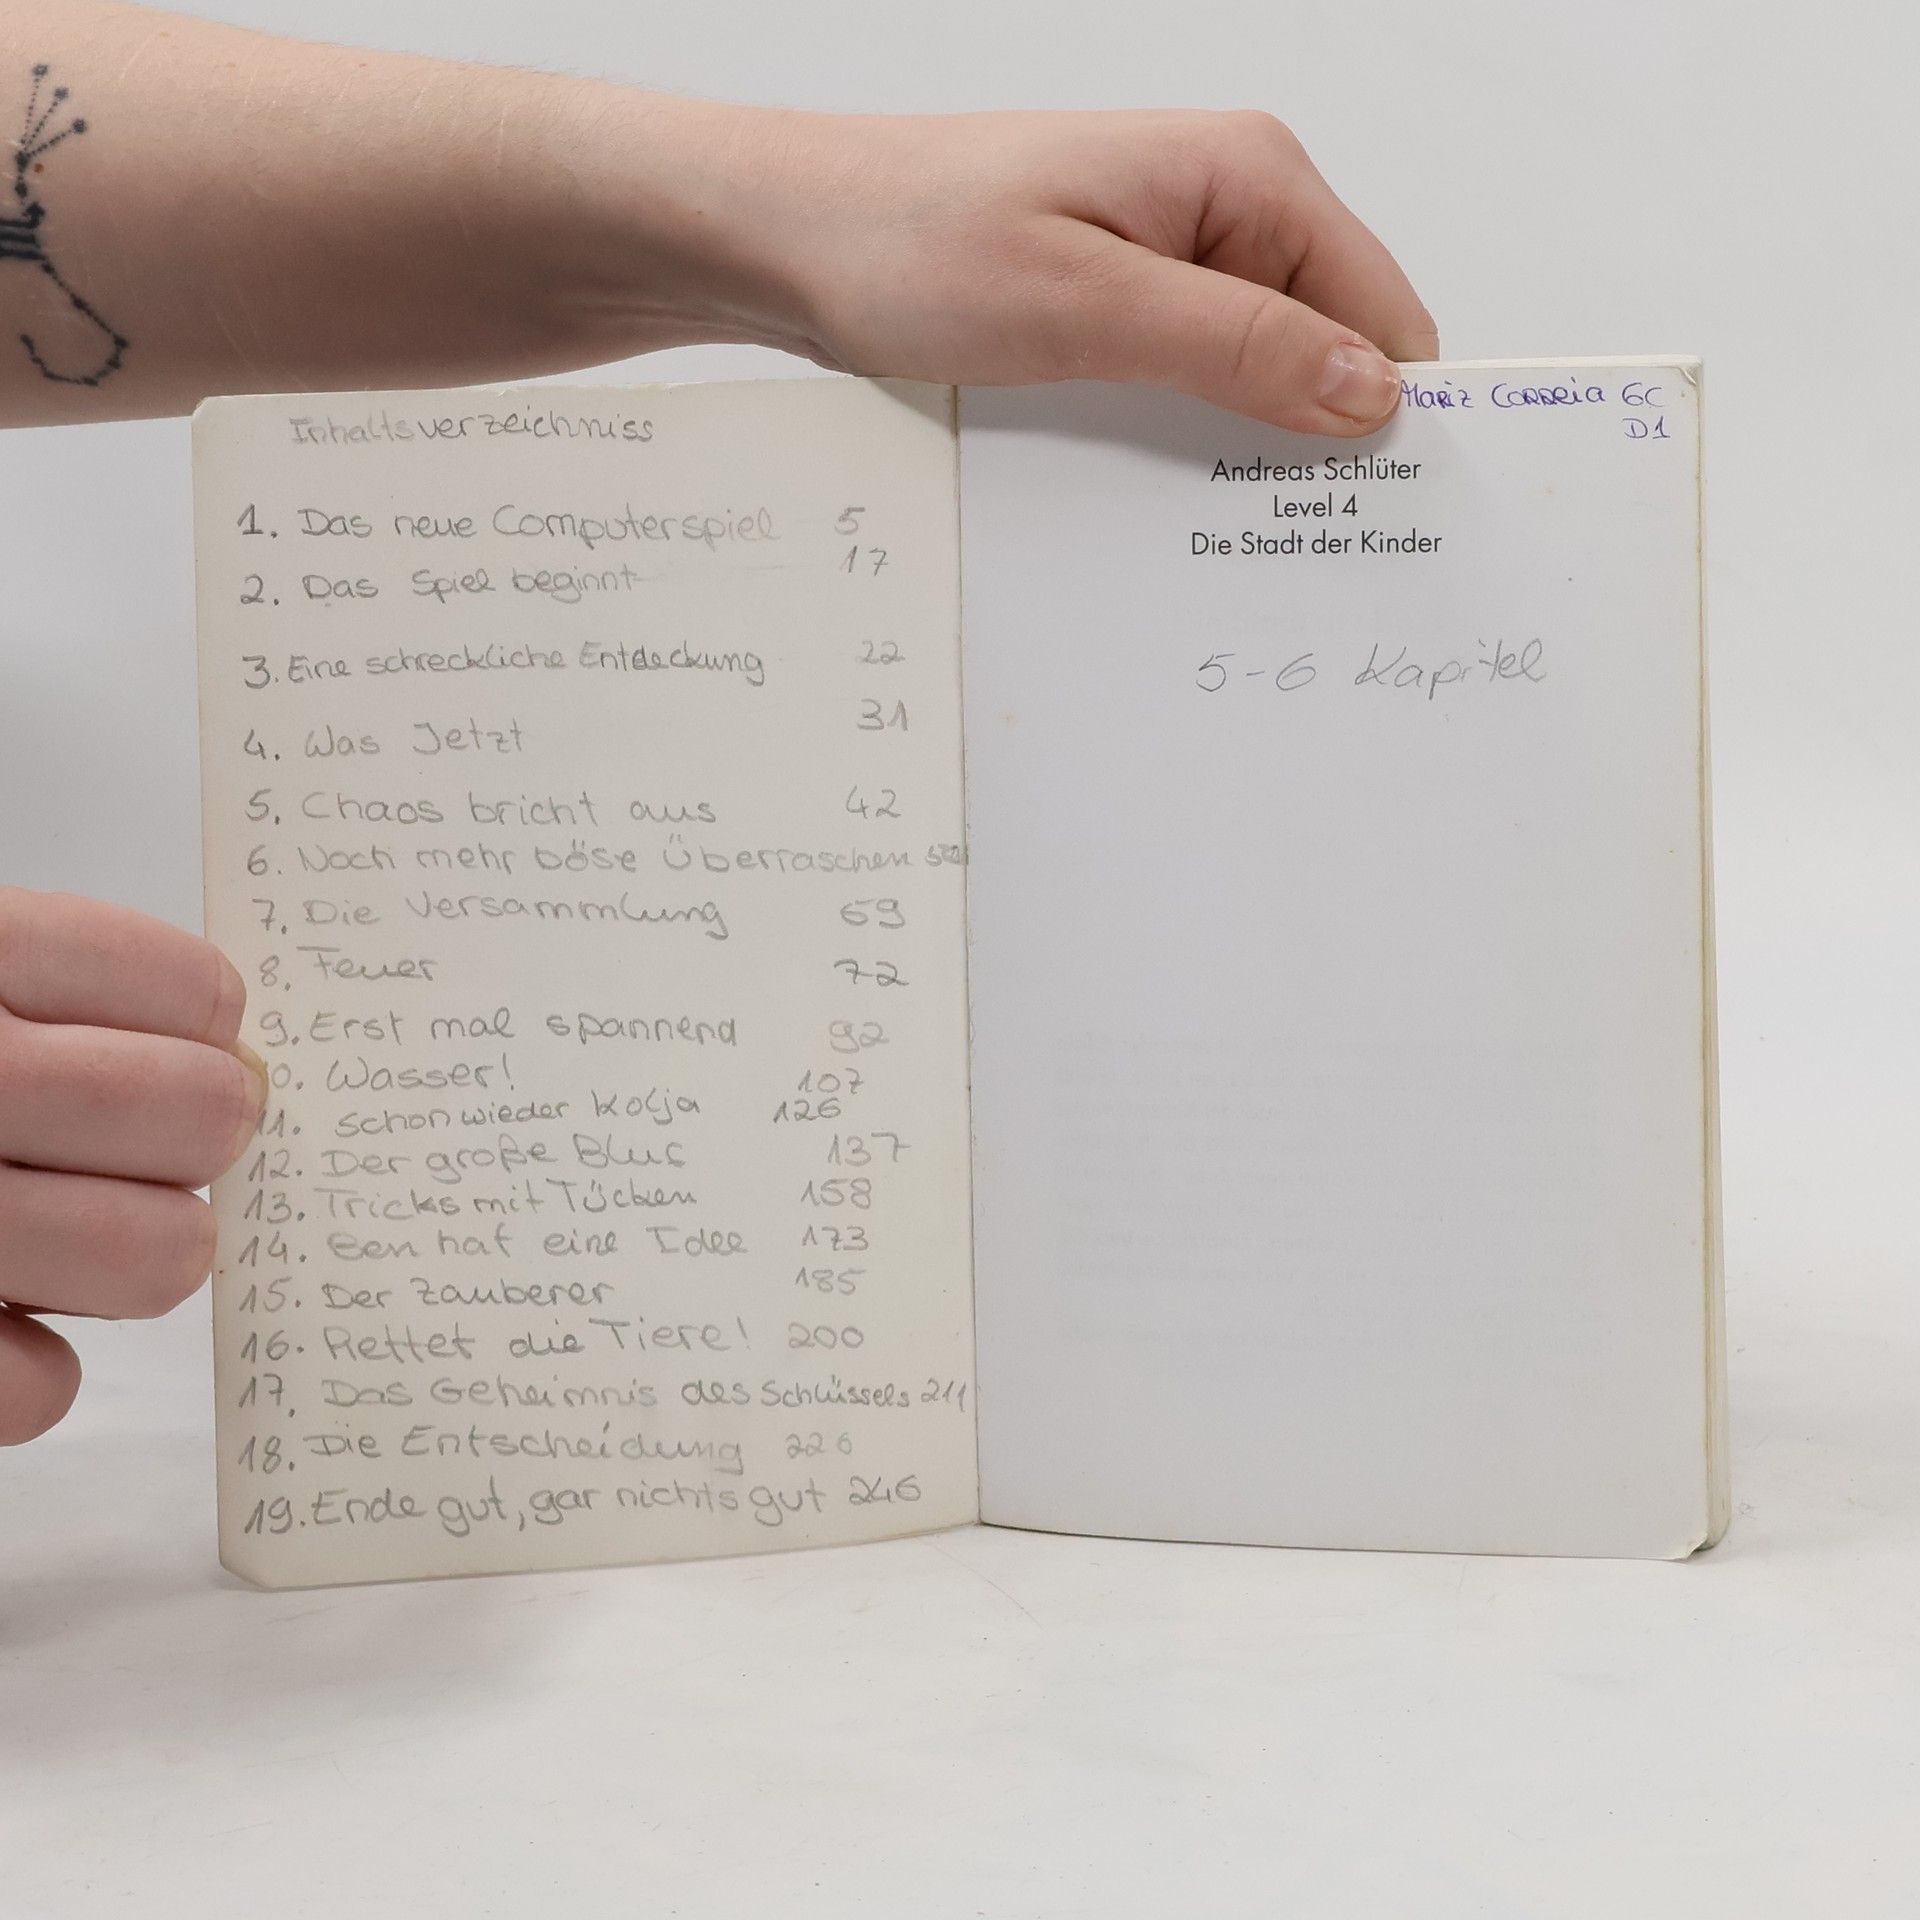 Inhaltsverzeichniss
1. Das neue Computerspiel 5
2. Das Spiel beginnt 17
3. Eine schreckliche Entdeckung 22
4. Was Jetzt 31
5. Chaos bricht aus 42
6. Noch mehr böse Überraschen
7. Die Versammlung 69
8. Feuer 72
9. Erst mal spannend 92
0. Wasser! 107
11. schon wieder Kolja 126
12. Der große Bluf 137
13. Tricks mit Tücken 158
14. Ben hat eine Idee 173
15. Der Zauberer 185
16. Rettet die Tiere! 200
17. Das Geheimnis des Schlüssels 211
18. Die Entscheidung 226
19. Ende gut, gar nichts gut 246
Mariz Correia 6C
D1
Andreas Schlüter
Level 4
Die Stadt der Kinder
5-6 Kapitel